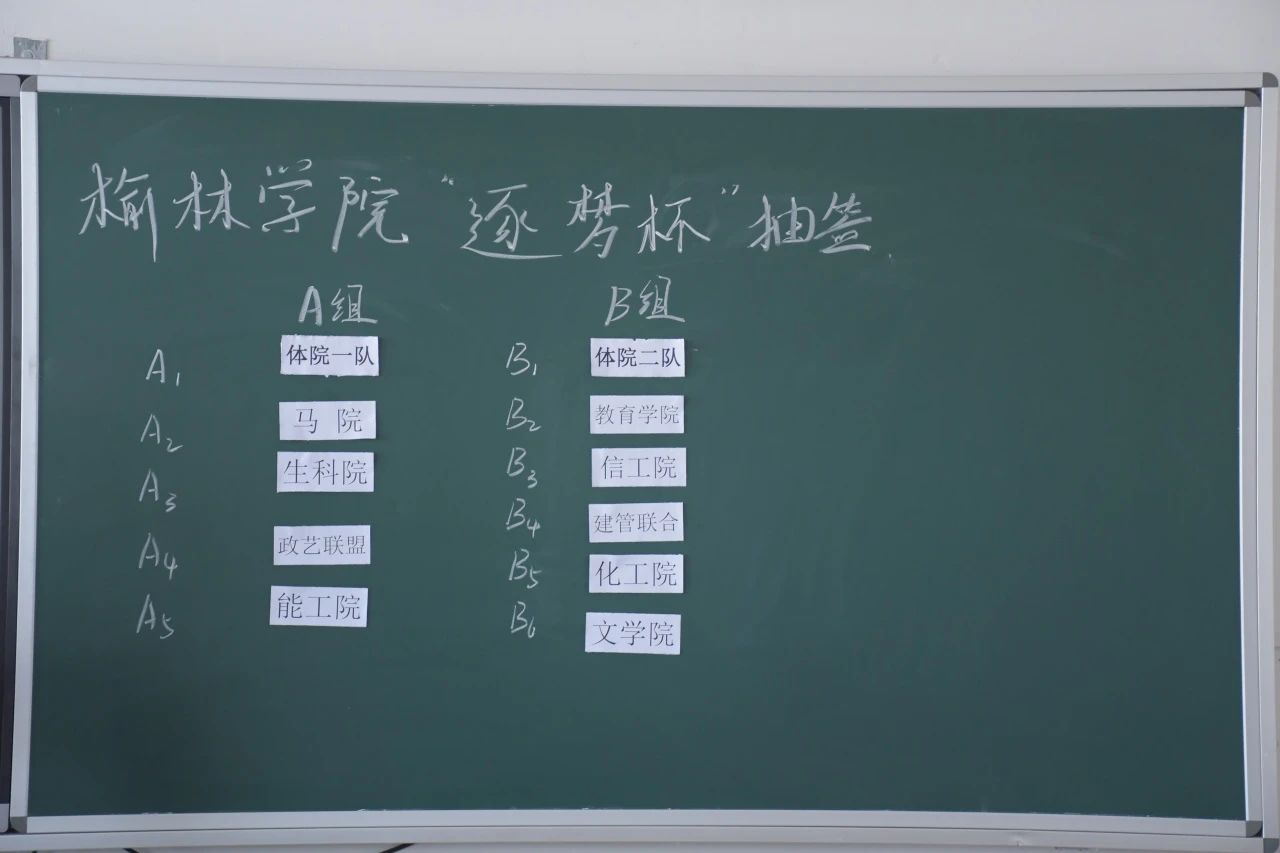 榆林学院“逐梦杯”抽签
A组 B组
A1 体院一队 B1 体院二队
A2 马 院 B2 教育学院
A3 生科院 B3 信工院
A4 政艺联盟 B4 建管联合
A5 能工院 B5 化工院
B6 文学院